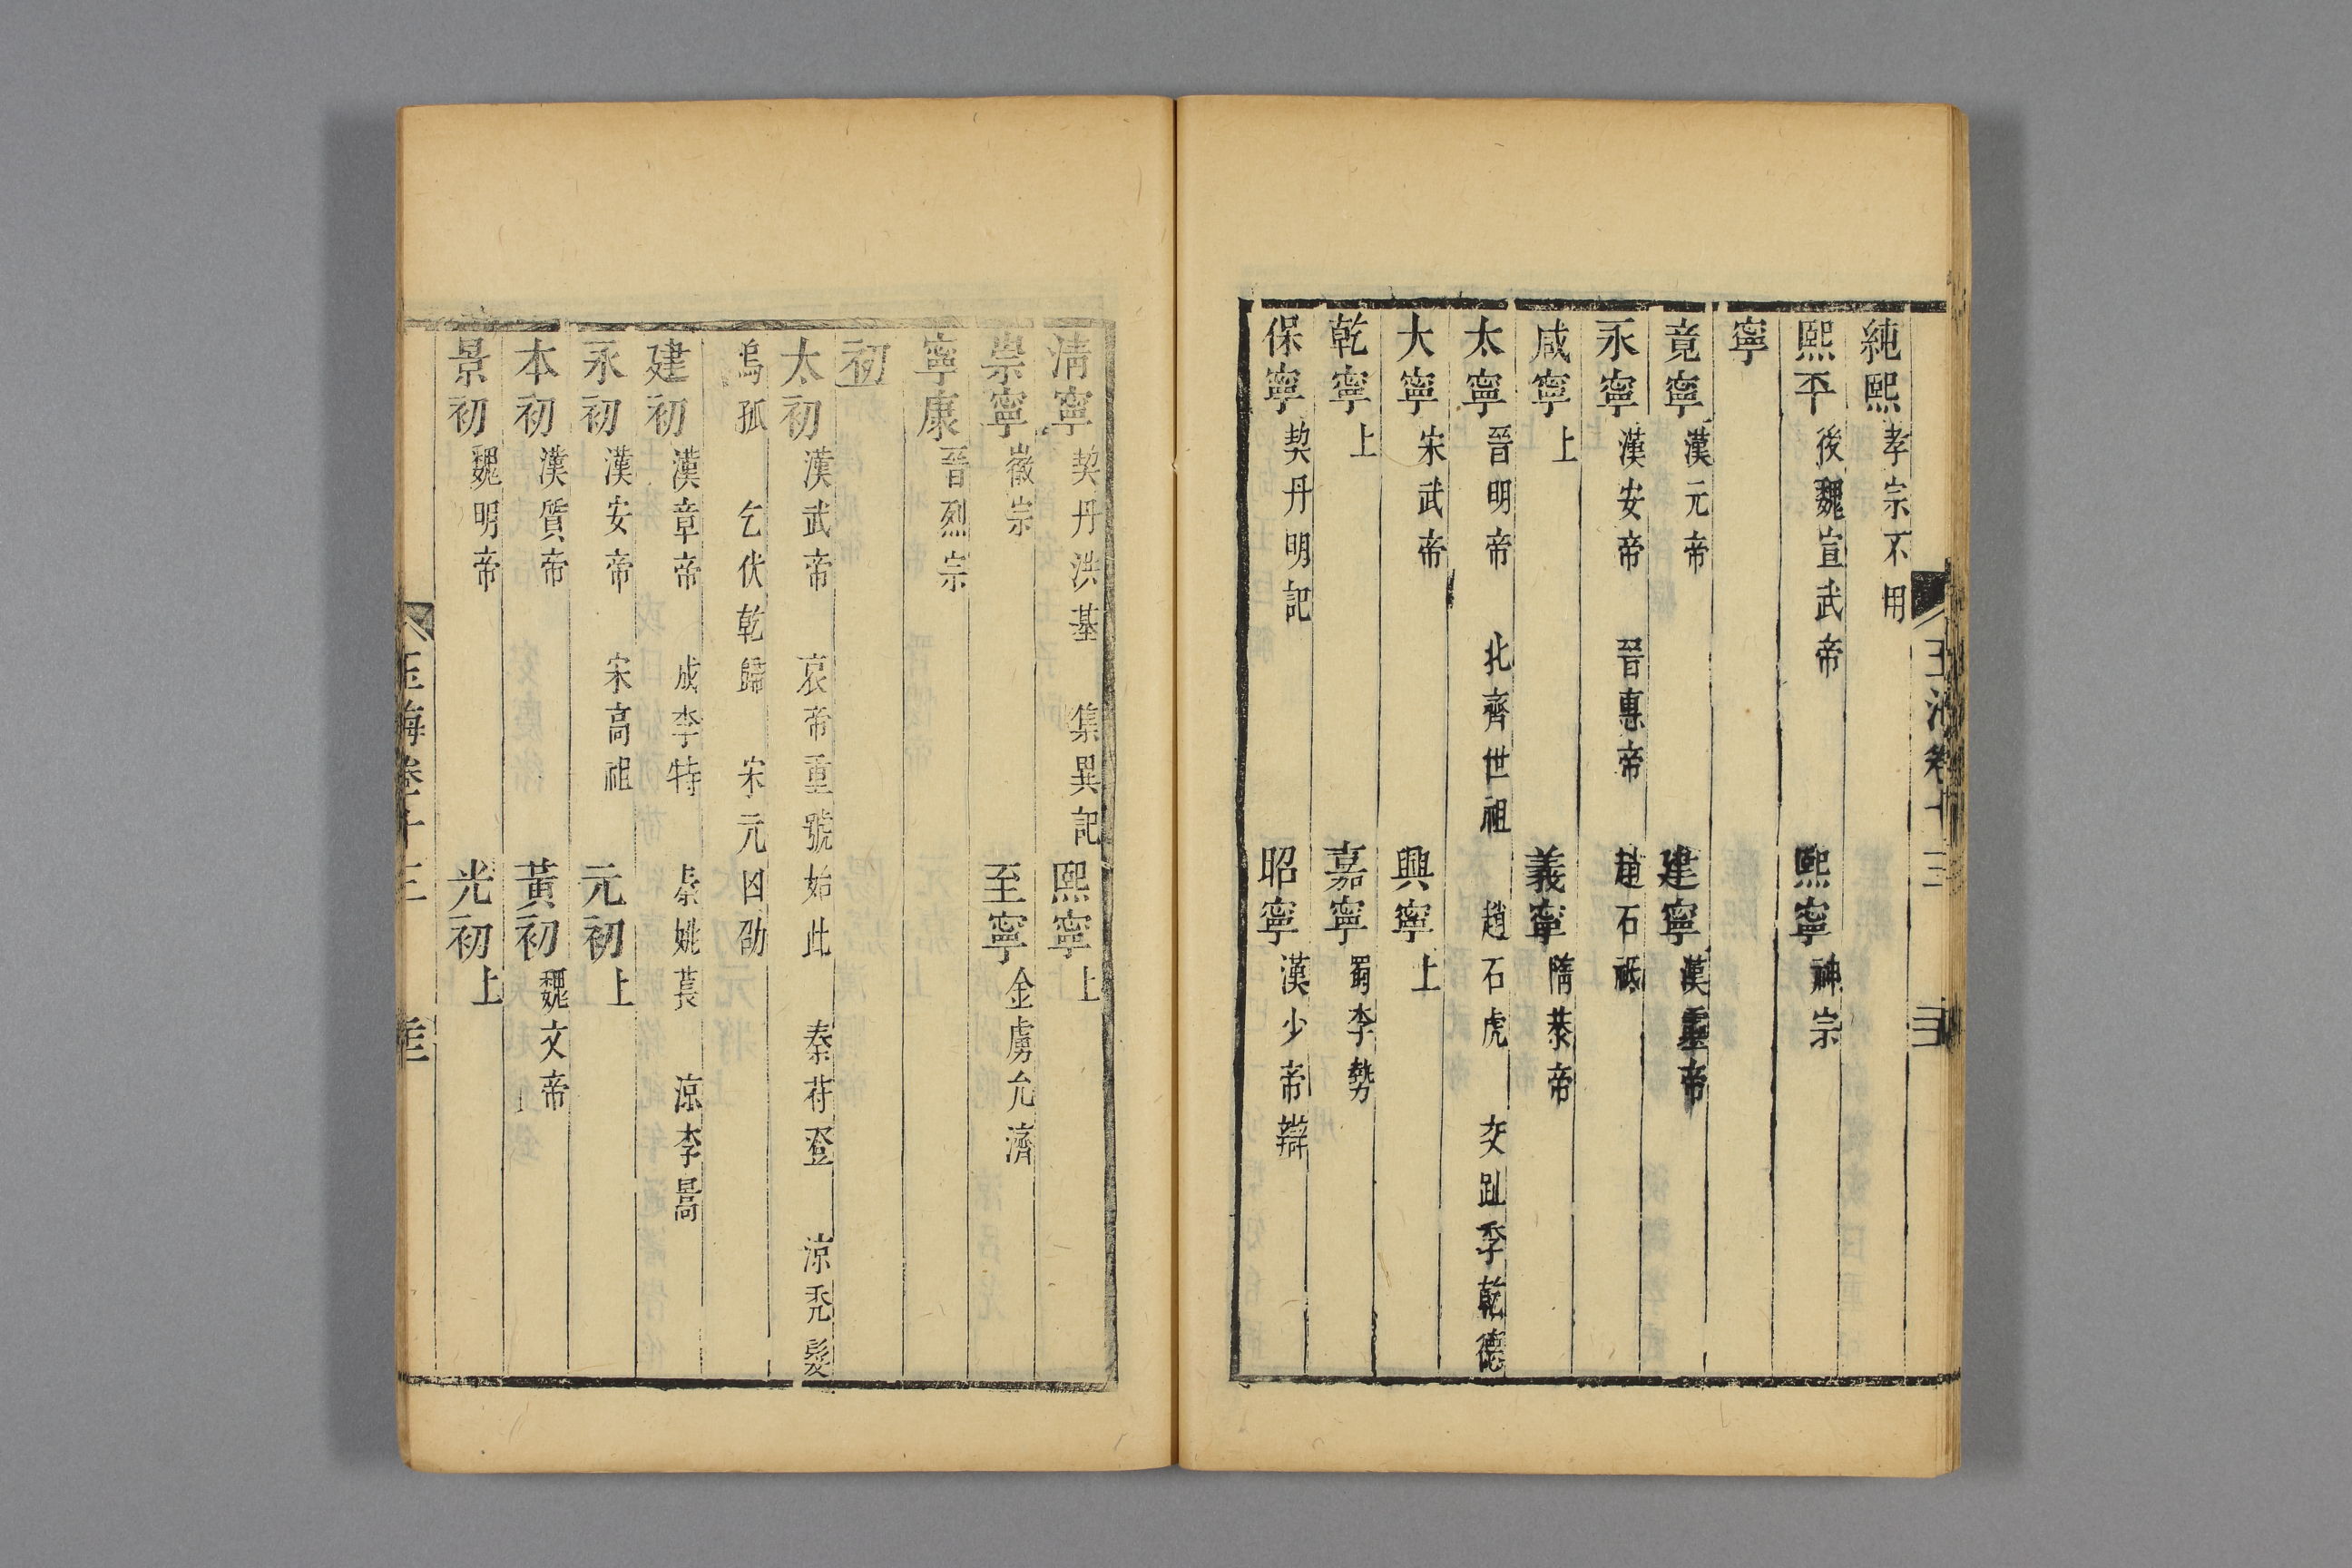 純熙 孝宗不用
熙平 後魏宣武帝 熙寧 神宗
寧
竟寧 漢元帝 建寧 漢靈帝
永寧 漢安帝 晉惠帝 趙石祗
咸寧 上 義寧 隋恭帝
太寧 晉明帝 北齊世祖 趙石虎 交趾李乾德
大寧 宋武帝 興寧 上
乾寧 上 嘉寧 蜀李勢
保寧 契丹明記 昭寧 漢少帝辯
清寧 契丹洪基 集異記 熙寧 上
崇寧 徽宗 至寧 金虜允濟
寧康 晉烈宗
初
太初 漢武帝 哀帝重號始此 秦苻登 涼禿髮
烏孤 乞伏乾歸 宋元凶劭
建初 漢章帝 成李特 秦姚萇 涼李暠
永初 漢安帝 宋高祖 元初 上
本初 漢質帝 黃初 魏文帝
景初 魏明帝 光初 上
玉海卷十三